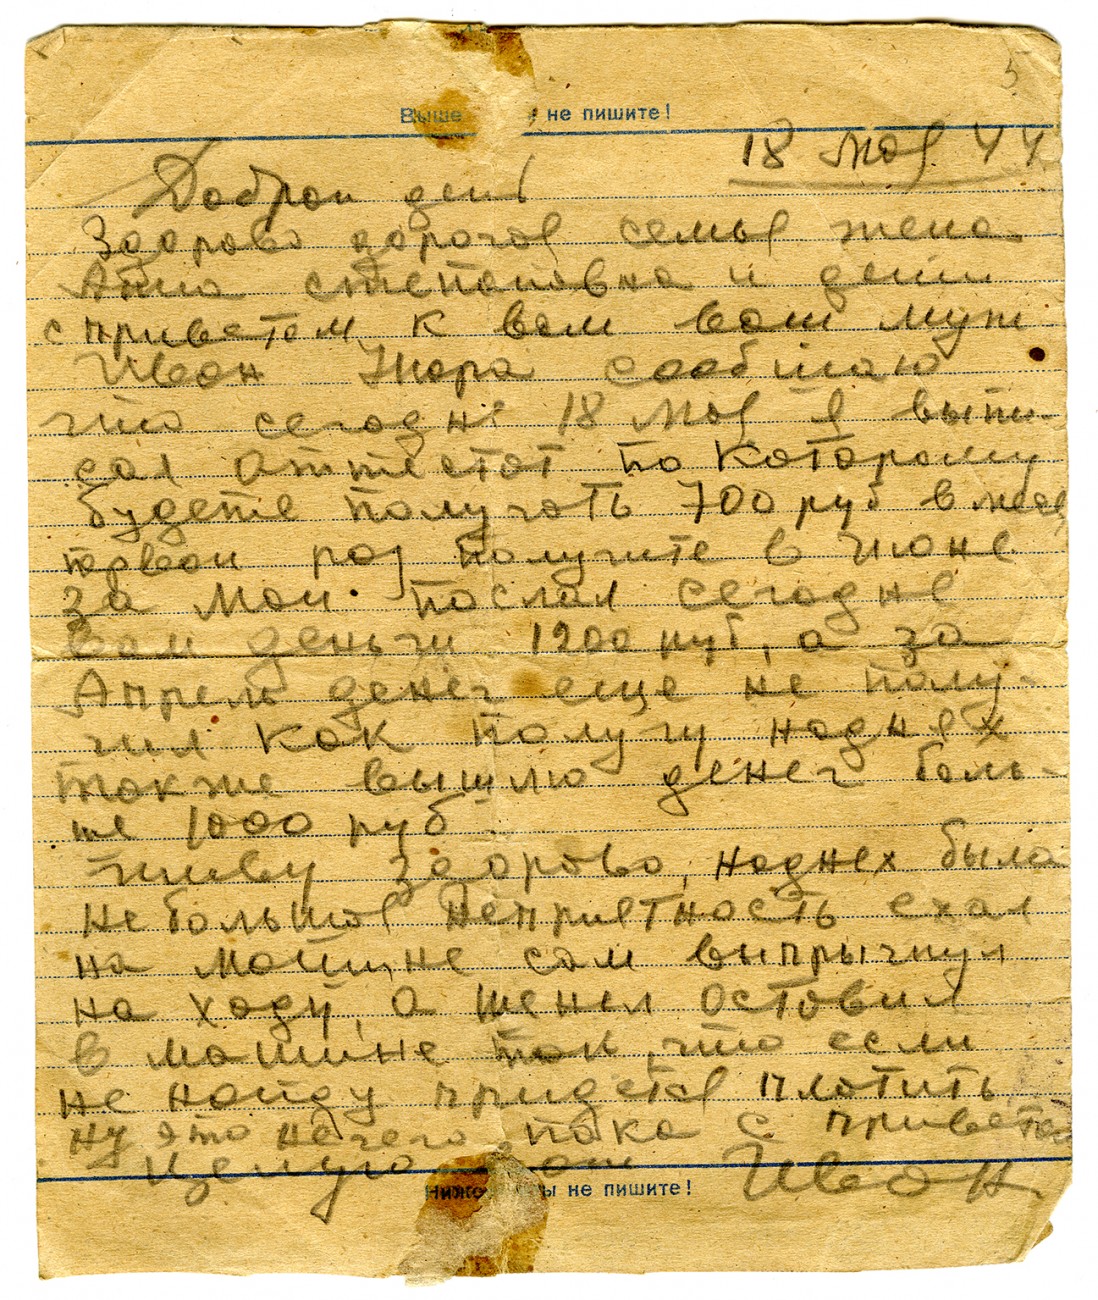 5
Выше не пишите!
18 мая 44
Доброй день
Здорово дорогая семья жена
Анна степановна и дети
с приветом к вам ваш муж
Иван Жора сообшаю
что сегодне 18 мая я выпи-
сал аттестат по которому
будете получать 700 руб в мес
первой раз получите в июне
за май. послал сегодне
вам деньги 1200 руб, а за
Апрель денег еще не полу-
чил как получу наднях
также вышлю денег боль-
ше 1000 руб.
живу здорово, наднех была
небольшая неприятность ехал
на машине сам выпрыгнул
на ходу, а шенел оставил
в машине так, что если
не найду придется платить
ну это нечего, пока с приветом
Целую ваш Иван.
Ниже не пишите!